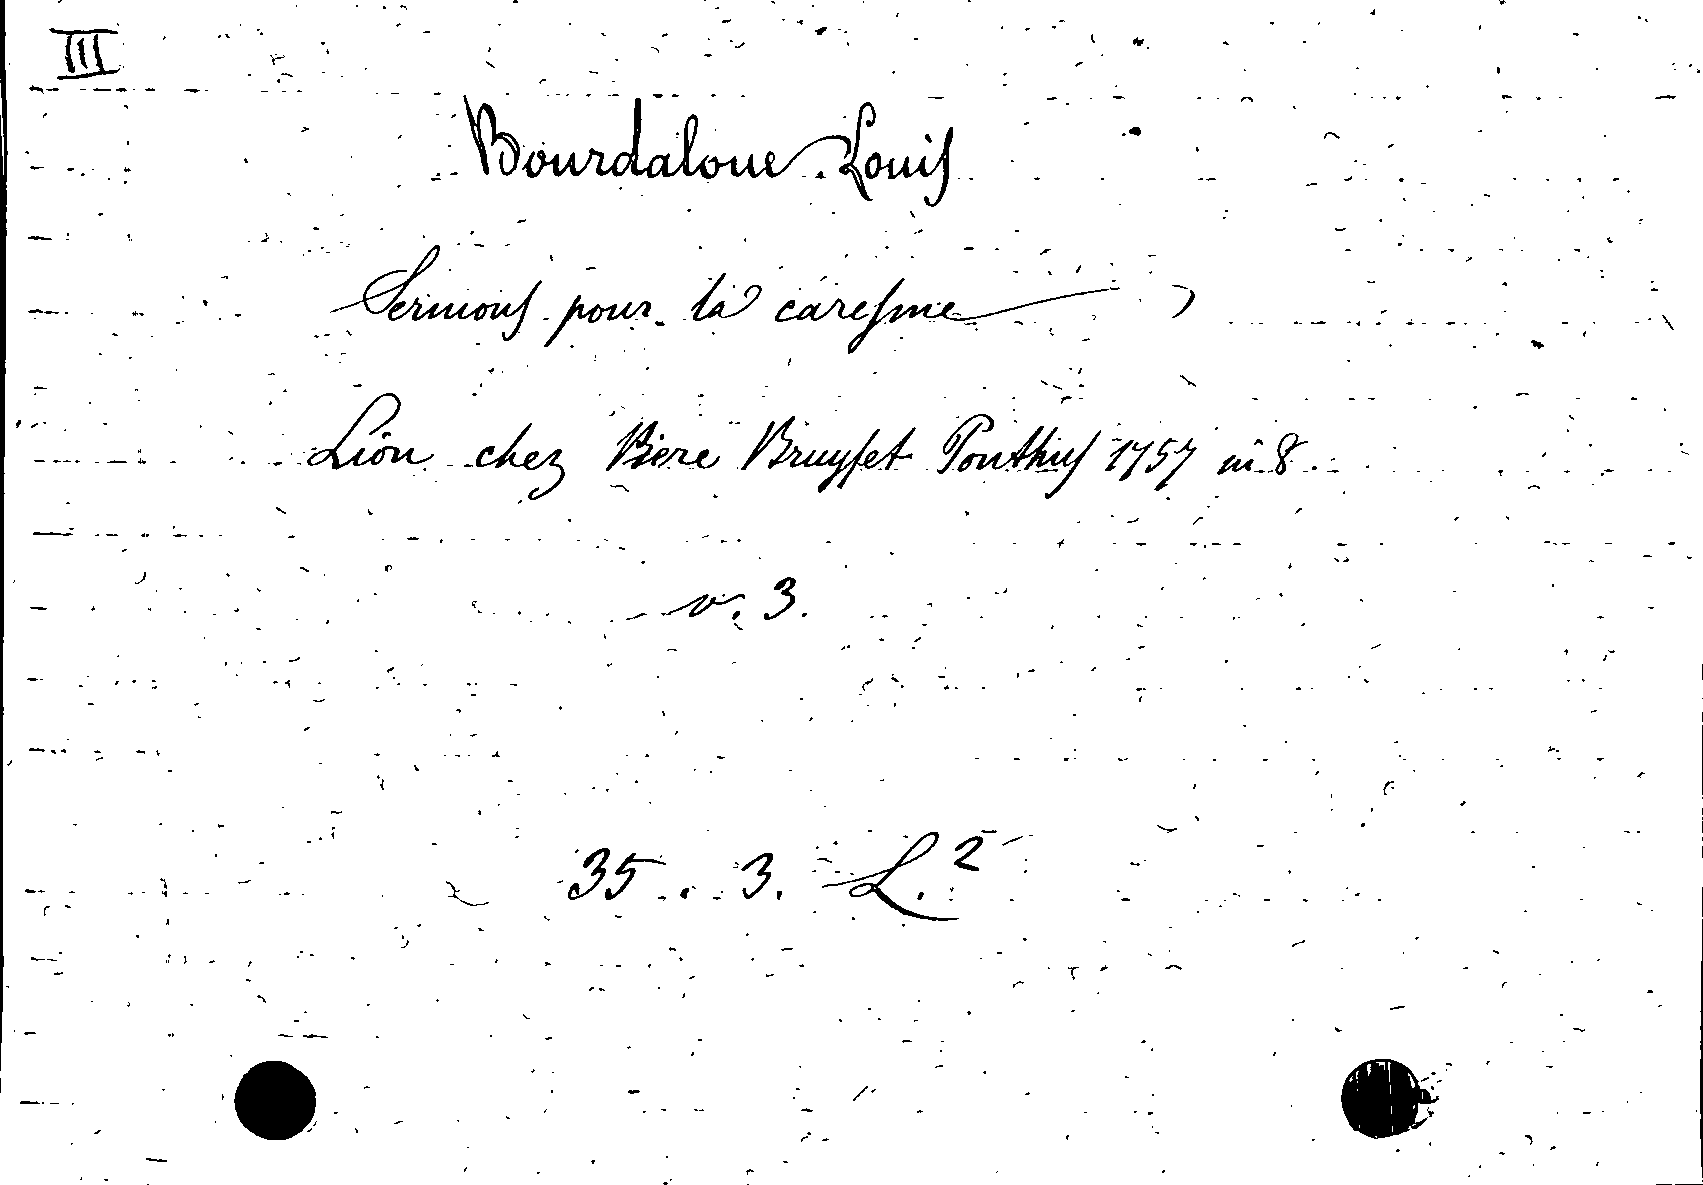 III
Bourdaloue Louis
Sermons pour la caresme
Lion chez Piere Bruyset Ponthus 1757 in 8.
v. 3.
35. 3. L.²